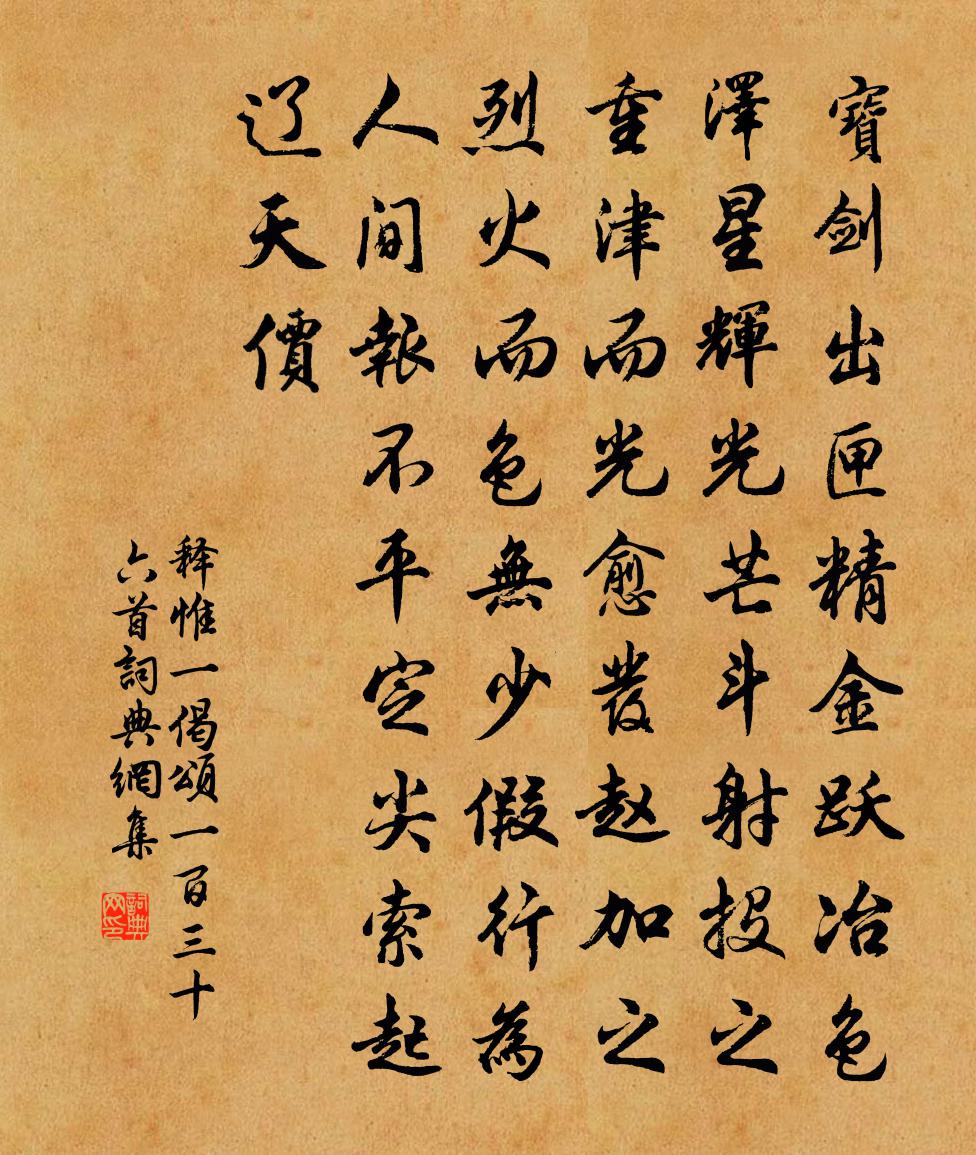 寶劍出匣精金跃冶色
澤星輝光芒斗射投之
重津而光愈發赵加之
烈火而色無少假行為
人間報不平定尖索起
辽天價
释惟一偈頌一百三十
六首詞典網集
詞典网印